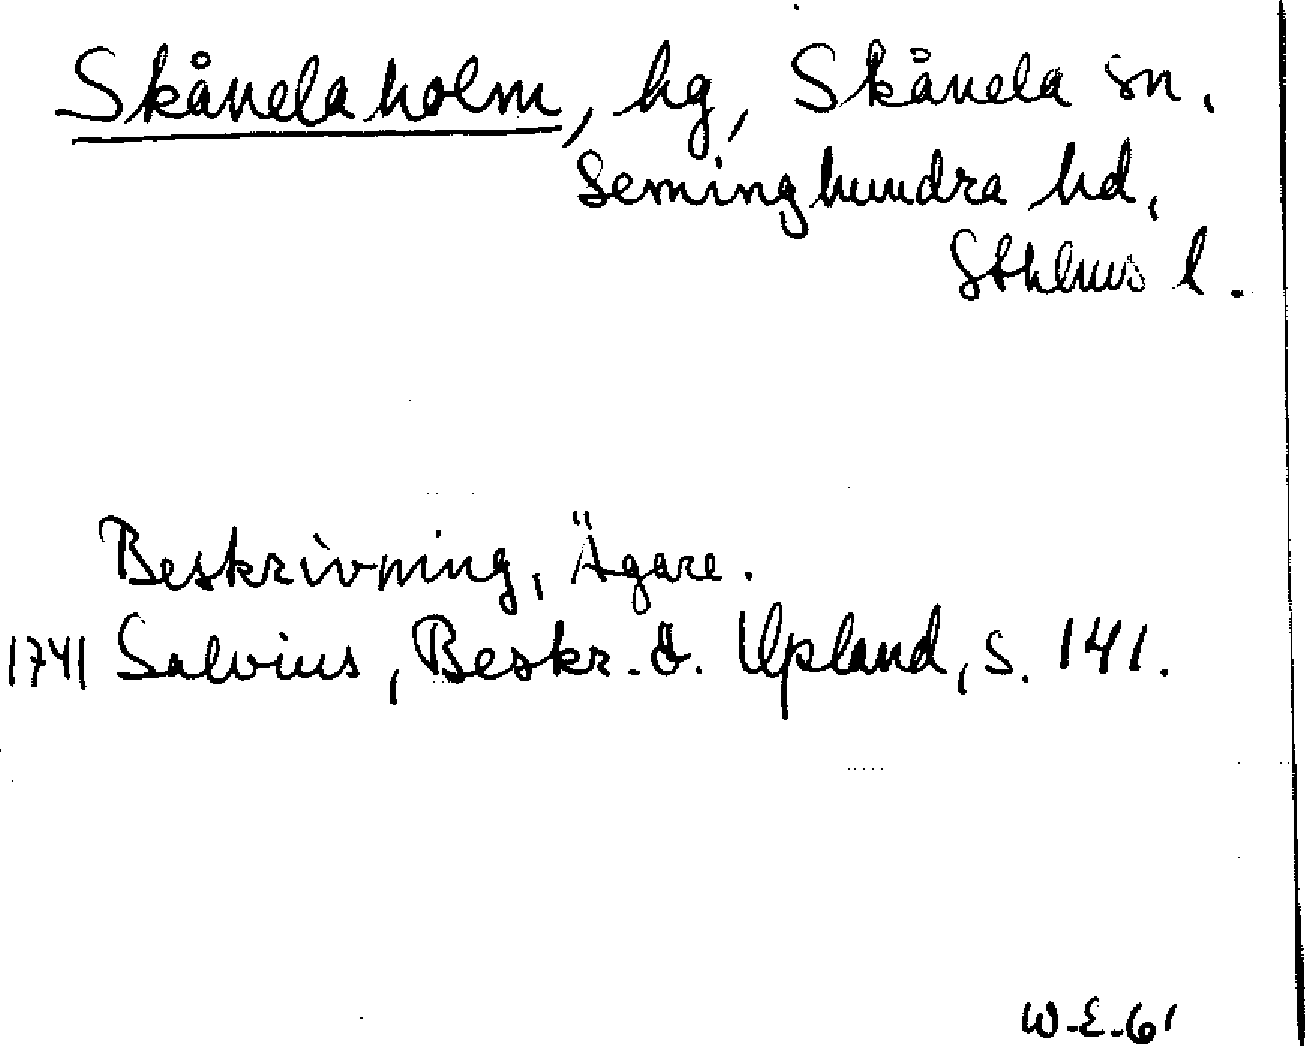 Skånelaholm, hg, Skånela sn,
Seminghundra hd,
Sthlms l.
Beskrivning, Ägare.
1741 Salvius, Beskr. ö. Upland, s. 141.
W-E-61